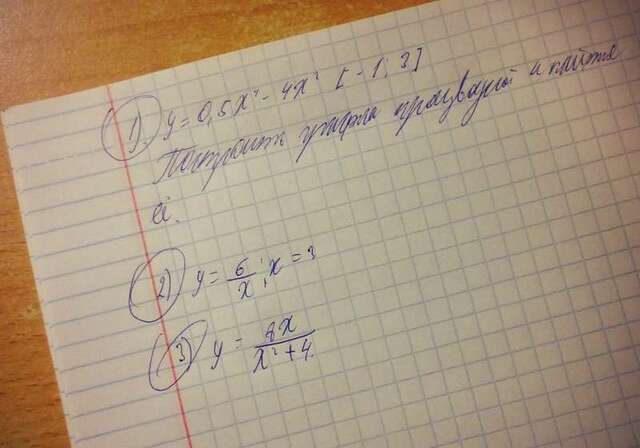 1) y = 0,5x⁴ - 4x² [-1; 3]
Построить график производной и найти
её.
2) y = 6/x; x = 3
3) y = 8x/(x² + 4)